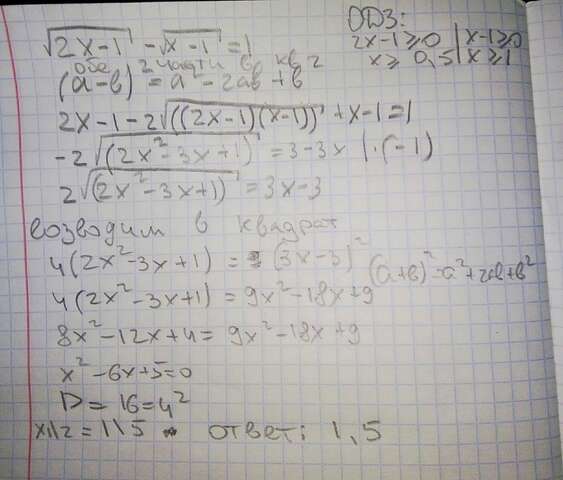 √2x-1 - √x-1 = 1
ОДЗ:
2x-1≥0 | x-1≥0
x≥0,5 | x≥1
обе части в кв
(a-b)² = a² - 2ab + b²
2x-1-2√((2x-1)(x-1)) + x-1=1
-2√(2x²-3x+1) = 3-3x |·(-1)
2√(2x²-3x+1) = 3x-3
возводим в квадрат
4(2x²-3x+1) = (3x-3)²
(a+b)²=a²+2ab+b²
4(2x²-3x+1) = 9x²-18x+9
8x²-12x+4 = 9x²-18x+9
x²-6x+5=0
D=16=4²
x1/2 = 1\5
ответ: 1,5